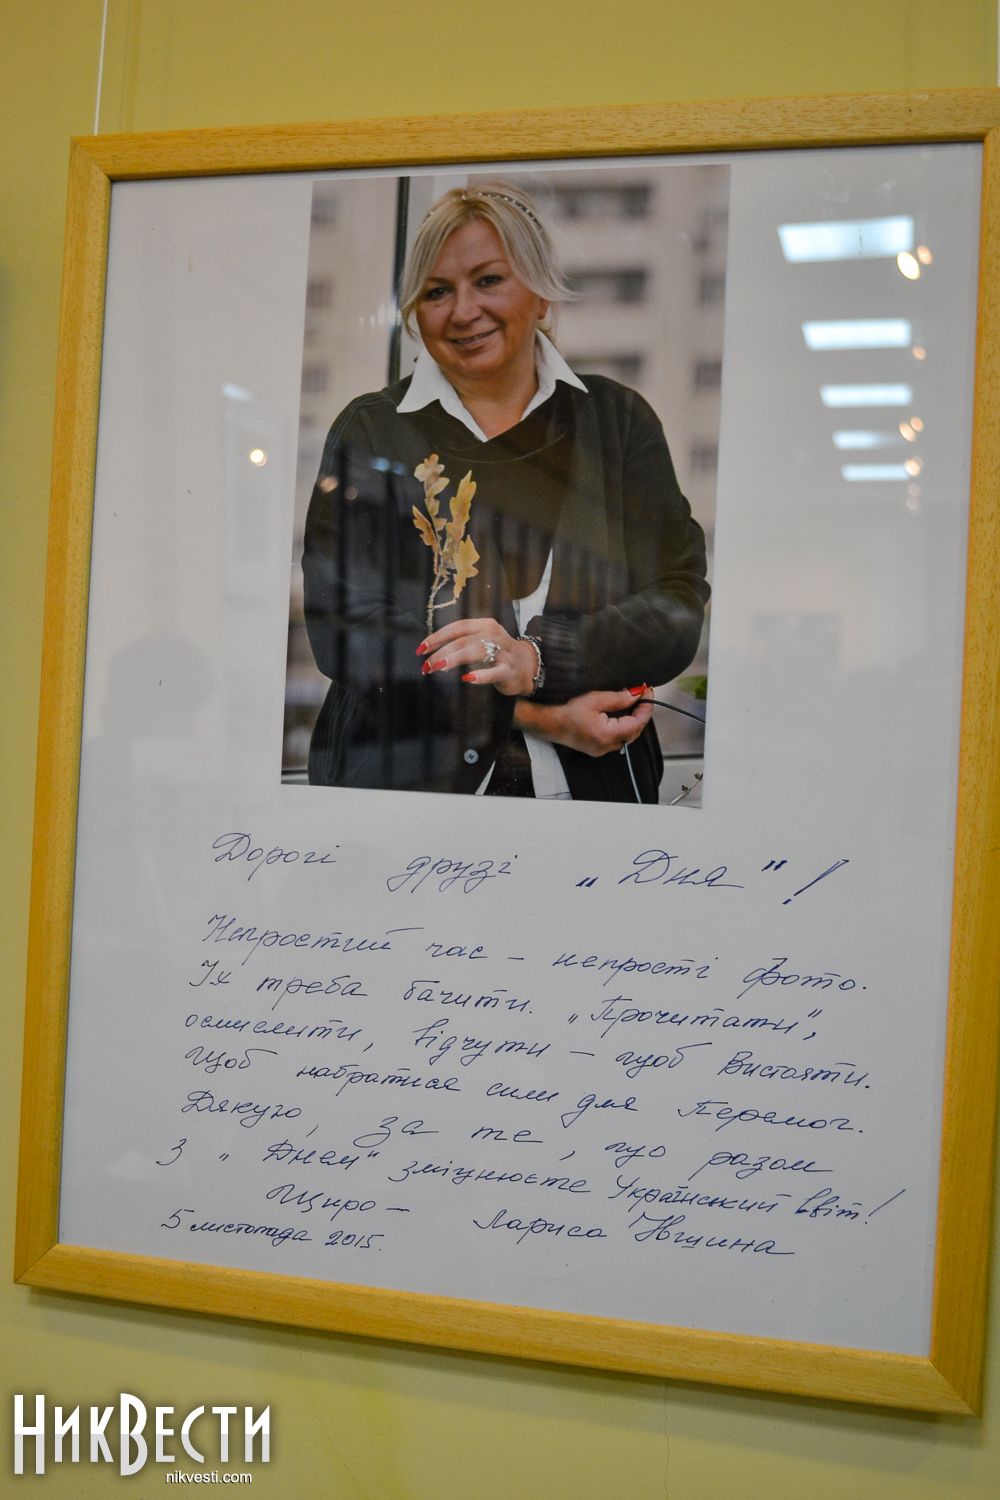 Дорогі друзі „Дня"!
Непростий час – непрості фото.
Їх треба бачити. „Прочитати",
осмислити, відчути – щоб Вистояти.
Щоб набратися сили для Перемог.
Дякую, за те, що разом
з „Днем" зміцнюєте Український світ!
Щиро – Лариса Івшина
5 листопада 2015.
НикВести
nikvesti.com